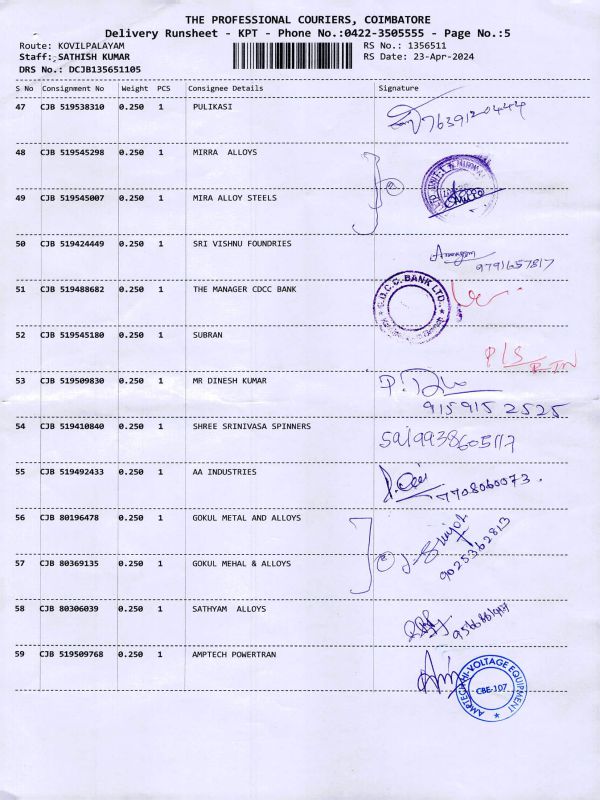 THE PROFESSIONAL COURIERS, COIMBATORE
Delivery Runsheet - KPT - Phone No.:0422-3505555 - Page No.:5
Route: KOVILPALAYAM RS No.: 1356511
Staff: SATHISH KUMAR RS Date: 23-Apr-2024
DRS No.: DCJB135651105
S No Consignment No Weight PCS Consignee Details Signature
47 CJB 519538310 0.250 1 PULIKASI 7639120444
48 CJB 519545298 0.250 1 MIRRA ALLOYS
49 CJB 519545007 0.250 1 MIRA ALLOY STEELS
50 CJB 519424449 0.250 1 SRI VISHNU FOUNDRIES
9791657817
51 CJB 519488682 0.250 1 THE MANAGER CDCC BANK
C.D.C.C. BANK LTD.
52 CJB 519545180 0.250 1 SUBRAN
P/S
53 CJB 519509830 0.250 1 MR DINESH KUMAR
915915 2525
54 CJB 519410840 0.250 1 SHREE SRINIVASA SPINNERS
55 CJB 519492433 0.250 1 AA INDUSTRIES
7708060073.
56 CJB 80196478 0.250 1 GOKUL METAL AND ALLOYS
57 CJB 80369135 0.250 1 GOKUL MEHAL & ALLOYS
9025362813
58 CJB 80306039 0.250 1 SATHYAM ALLOYS
59 CJB 519509768 0.250 1 AMPTECH POWERTRAN
AMPTECH HI-VOLTAGE EQUIPMENT
CBE-107